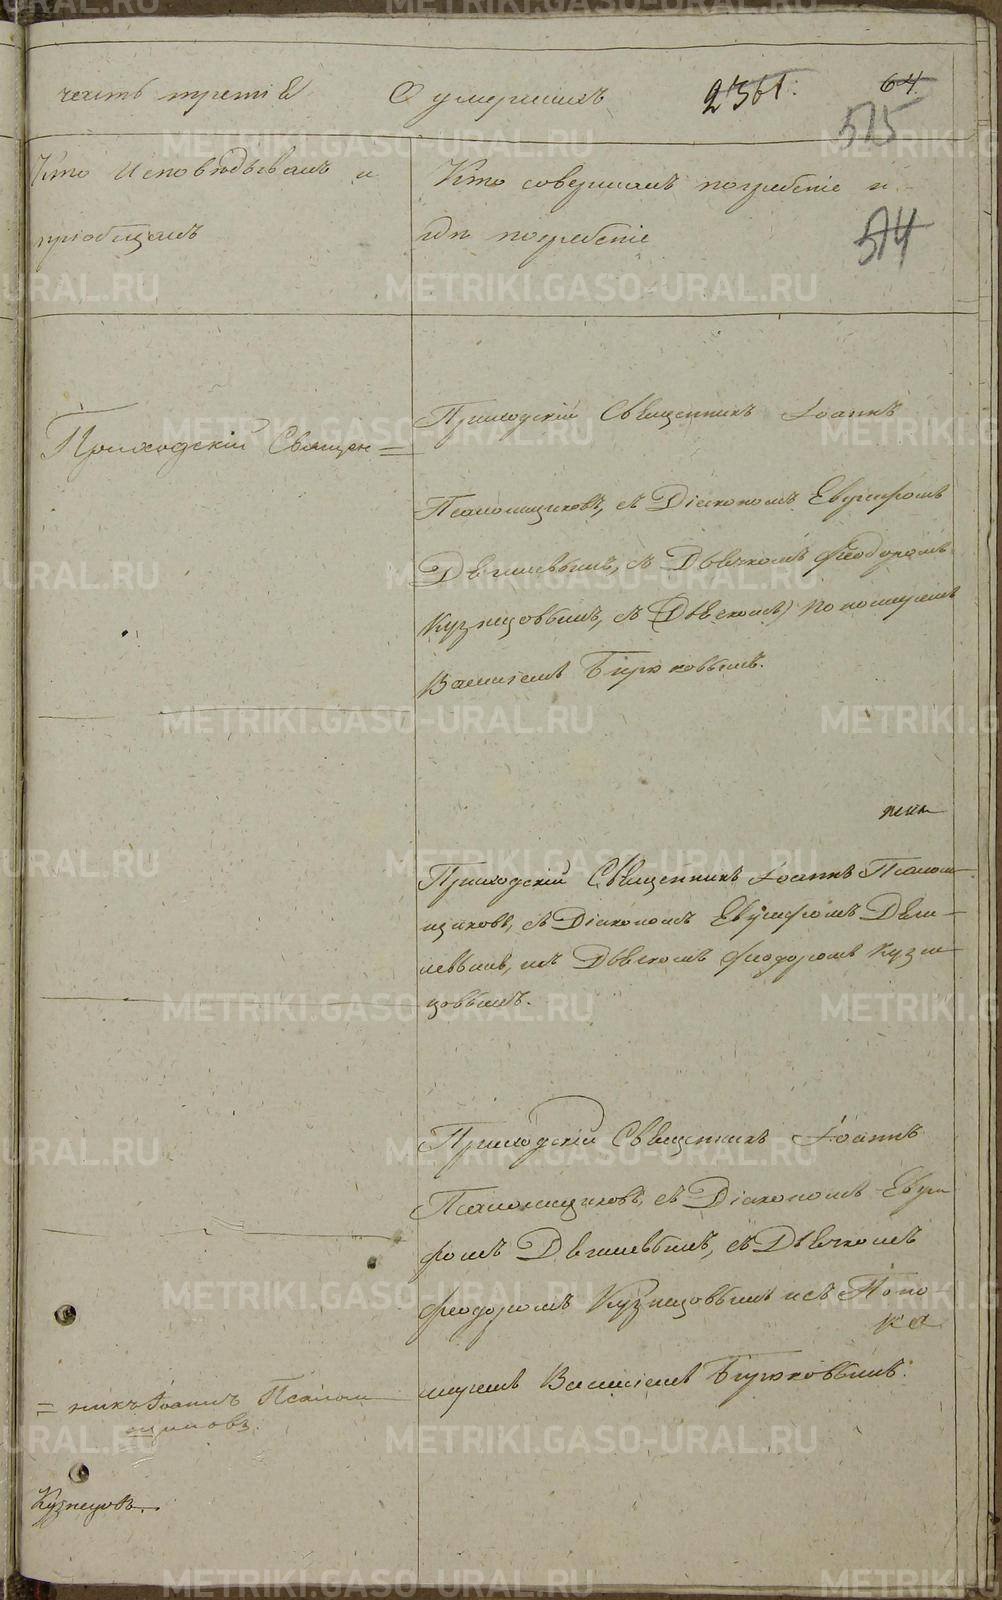 часть третіѧ
О умершихъ
2361.
64
515
514
Кто исповѣдывалъ и
пріобщалъ
Кто совершалъ погребеніе и
гдѣ погребены
Приходскій Священ=
Приходскій Священникъ Іоаннъ
Псаломщиковъ, съ Діакономъ Евѳиміомъ
съ Дьячкомъ Феодоромъ
Кузнецовымъ, съ
Василіемъ Бирюковымъ.
Приходскій Священникъ Іоаннъ Псалом
щиковъ, съ Діакономъ
Дьячкомъ Феодоромъ Кузне
цовымъ.
Приходскій Священникъ Іоаннъ
Псаломщиковъ, съ Діакономъ
съ Дьячкомъ
Феодоромъ Кузнецовымъ и съ Поно
маремъ Василіемъ Бирюковымъ.
= никъ Іоаннъ Псалом
щиковъ.
Кузнецовъ.
METRIKI.GASO-URAL.RU